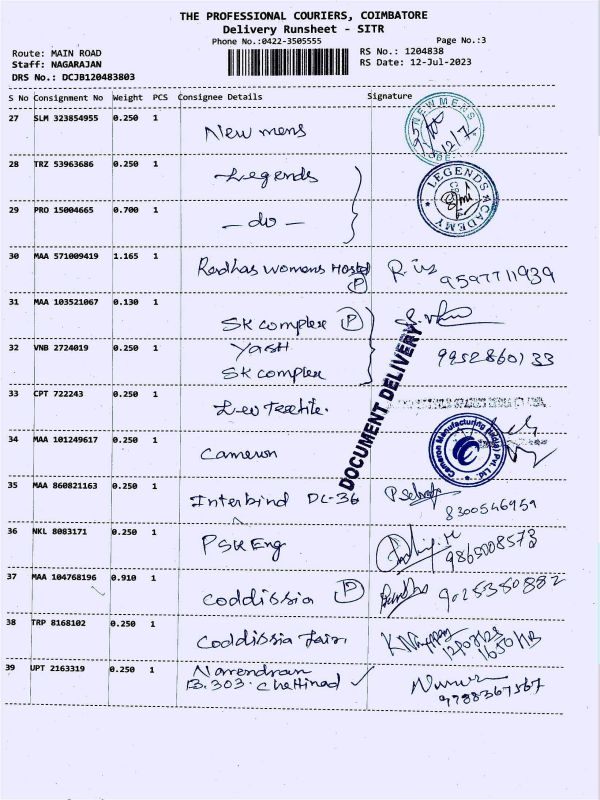 THE PROFESSIONAL COURIERS, COIMBATORE
Delivery Runsheet - SITR
Phone No.:0422-3505555 Page No.:3
Route: MAIN ROAD RS No.: 1204838
Staff: NAGARAJAN RS Date: 12-Jul-2023
DRS No.: DCJB120483803
S No Consignment No Weight PCS Consignee Details Signature
27 SLM 323854955 0.250 1 New mens
NEWMENS
28 TRZ 53963686 0.250 1 Legends
LEGENDS ACADEMY
29 PRO 15004665 0.700 1 - do -
30 MAA 571009419 1.165 1 Radhas womens Hostel P 9597711939
31 MAA 103521067 0.130 1 SK complex P
32 VNB 2724019 0.250 1 Yash
SK complex 9952860133
DOCUMENT DELIVERY
33 CPT 722243 0.250 1 Leo Textile.
34 MAA 101249617 0.250 1 Cameron
Cameron Manufacturing (India) Pvt. Ltd.
35 MAA 860821163 0.250 1 Interbind DC-36 8300546959
36 NKL 8083171 0.250 1 PSK Eng 9865008573
37 MAA 104768196 0.910 1 Coddissia P 9025350882
38 TRP 8168102 0.250 1 Coddissia Fair.
39 UPT 2163319 0.250 1 Narrendran
B.303. Chettinad 9788367567